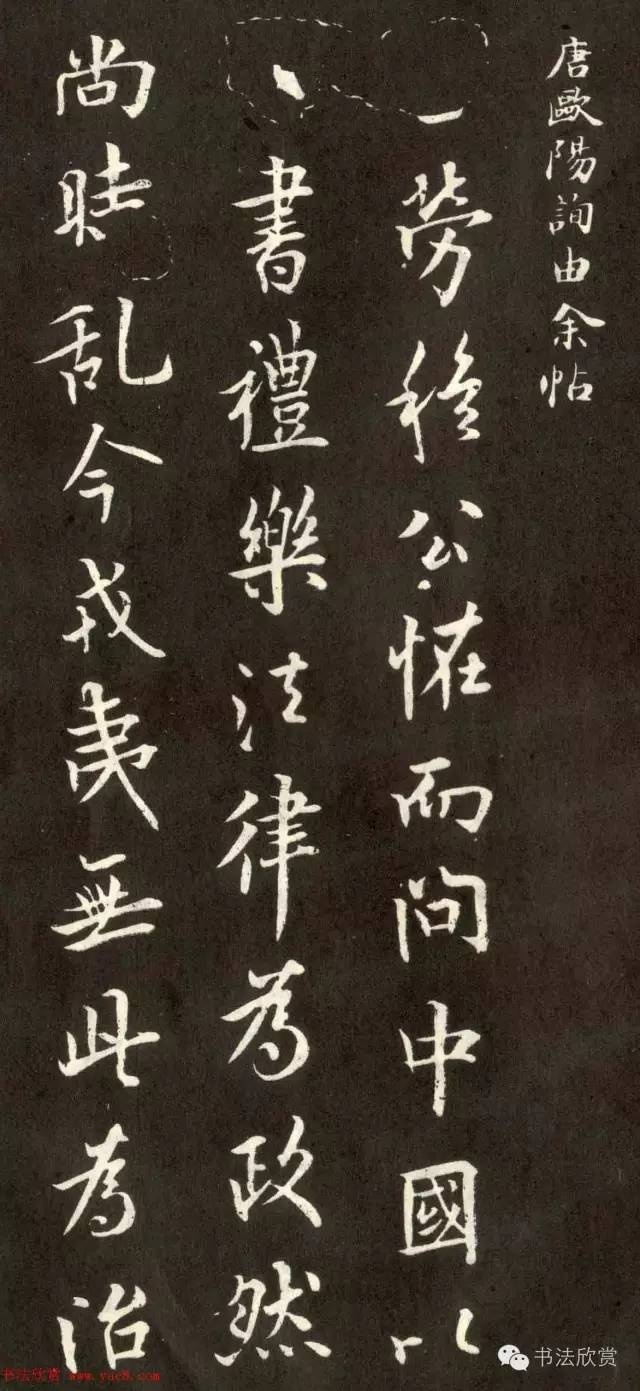 唐歐陽詢由余帖
勞穆公恠而問中國以
書禮樂法律為政然
尚時乱今戎夷無此為治
书法欣赏
书法欣赏 www.yac8.com